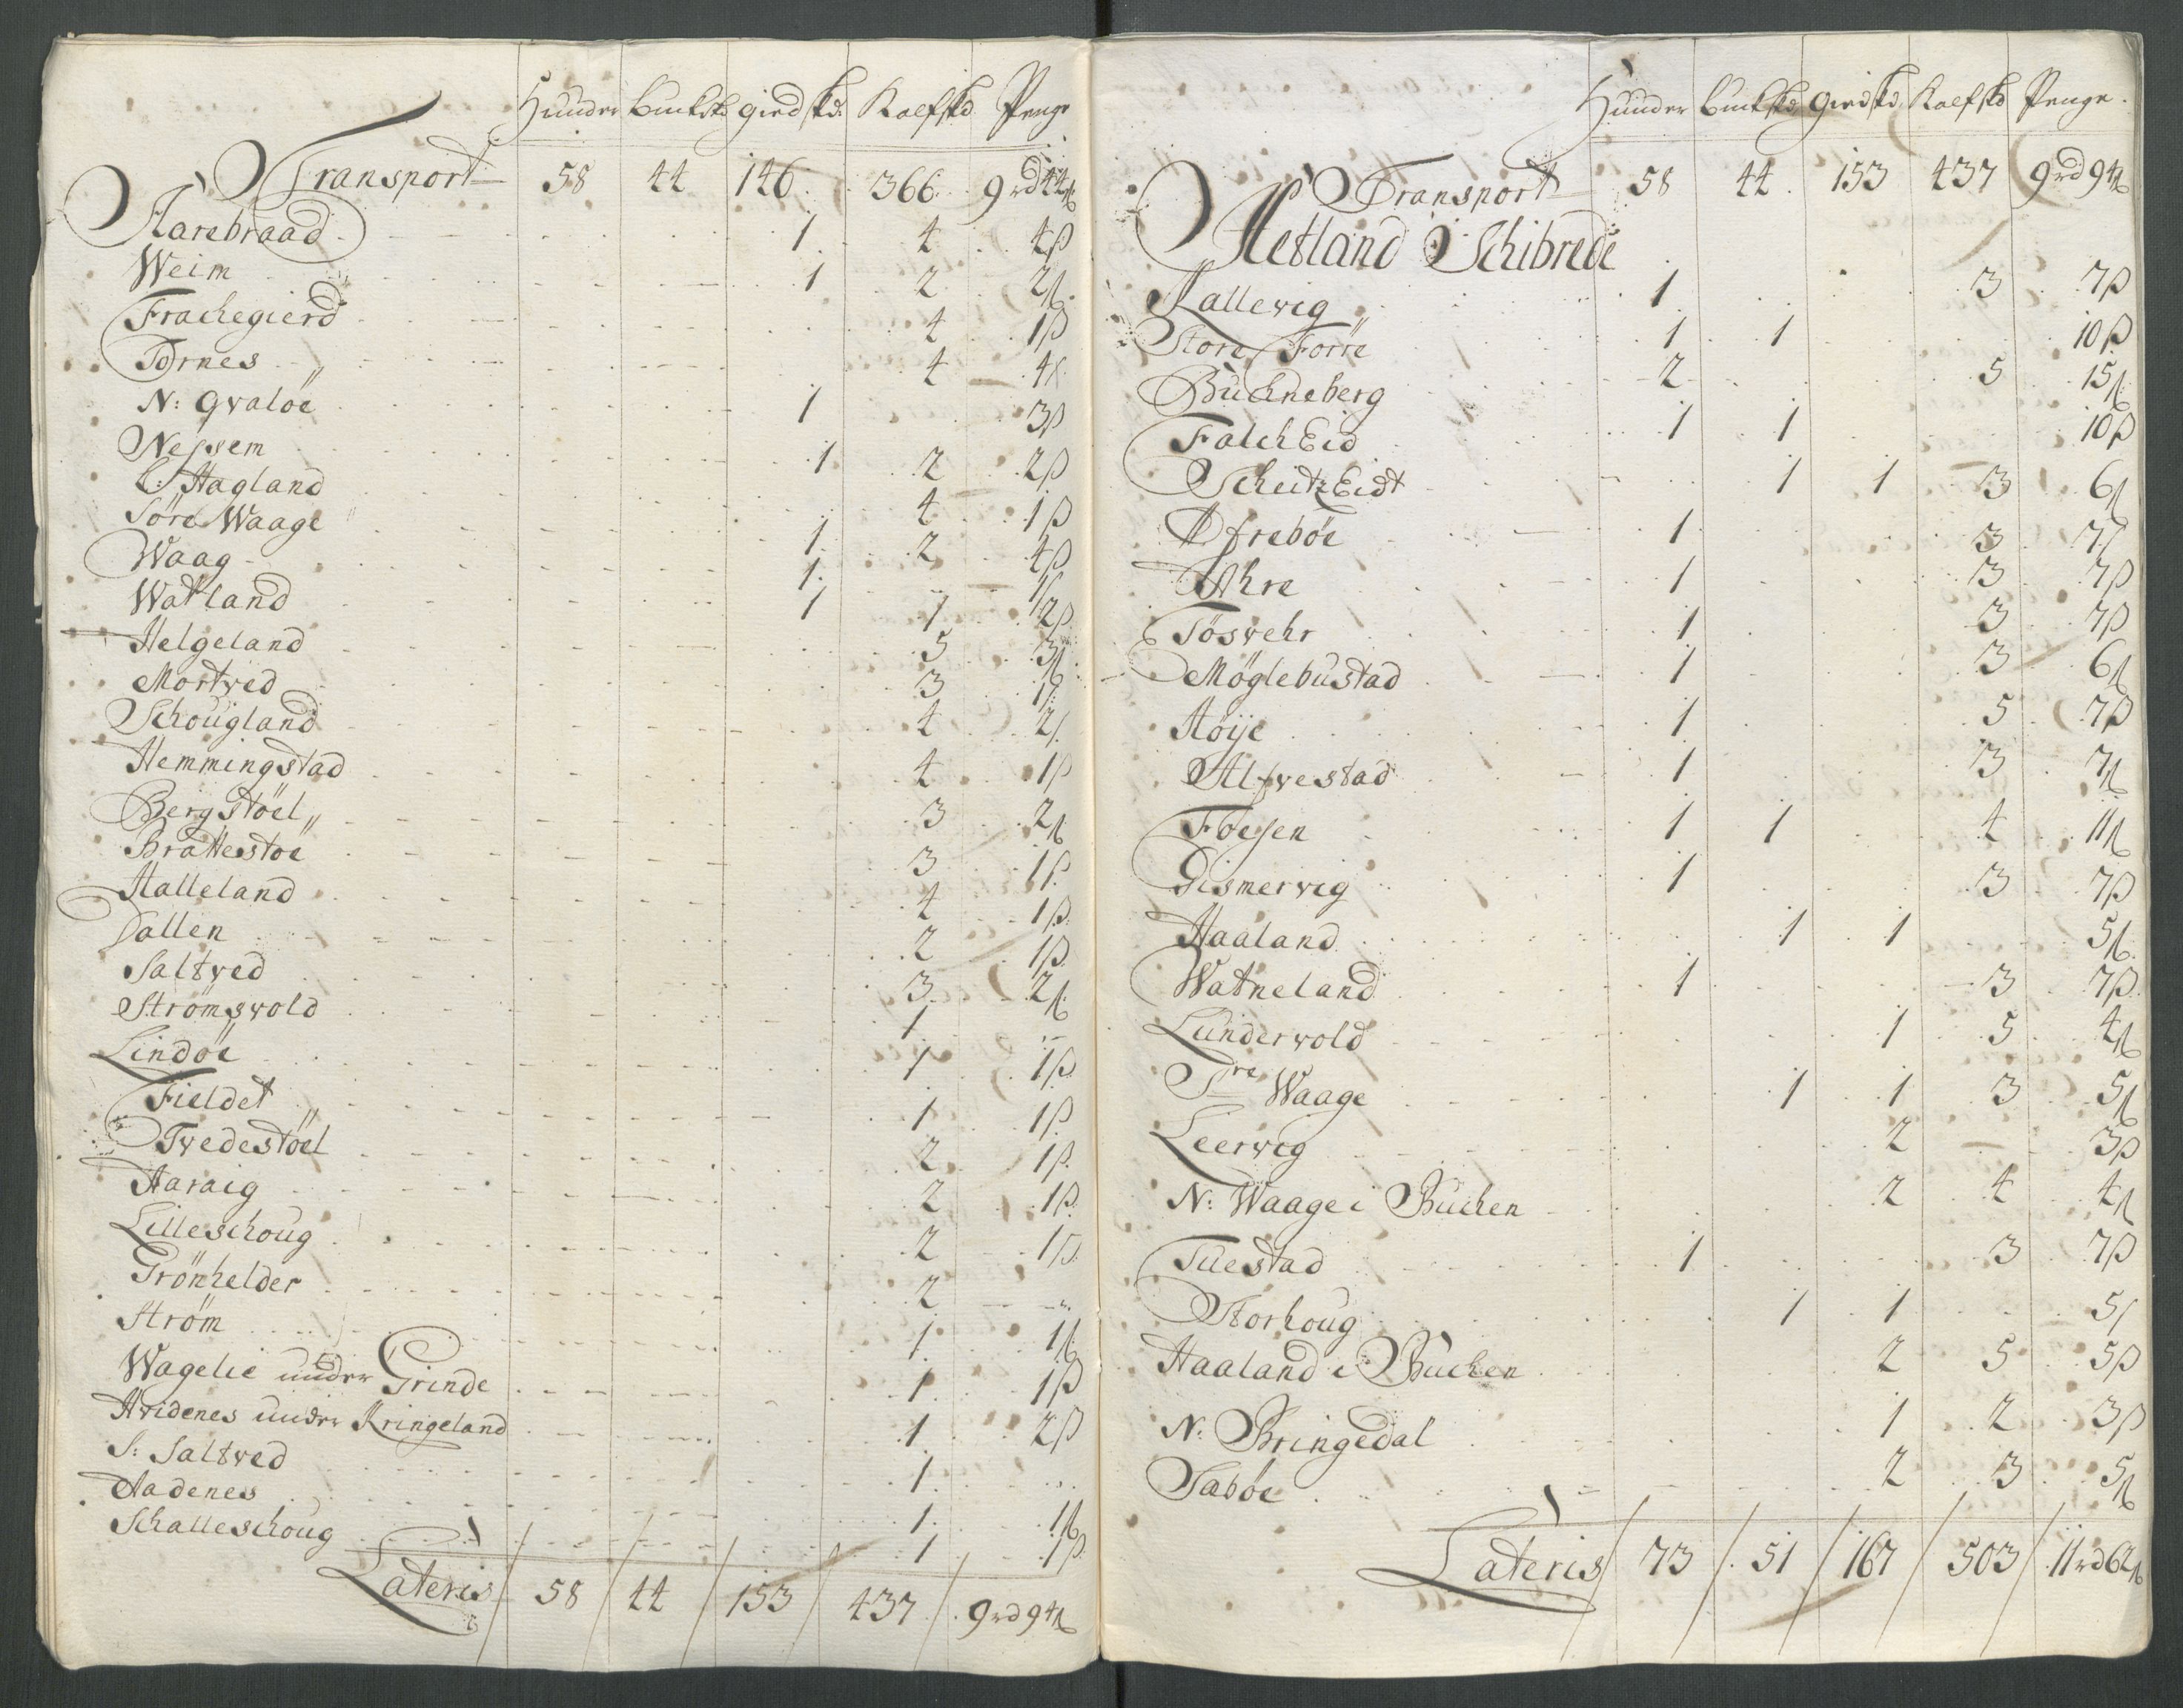 Huuder Buckskd giedskd: Kalfskd Penge
Transport 58 44 146 366 9rd 44ß
Aarebraad 1 4 4ß
Weim 1 2 2ß
Frachegierd 4 1ß
Tornes 4 4ß
N: Qvaløe 1 3ß
Nessem 1 2 2ß
L: Hagland 4 1ß
Söre Waage 1 2 4ß
Waag 1 1ß
Watland 1 1 2ß
Helgeland 5 3ß
Mortved 3 1ß
Schougland 4 2ß
Hemmingstad 4 1ß
Bergstöel 3 2ß
Brattestöe 3 1ß
Halleland 4 1ß
Dallen 2 1ß
Saltved 3 2ß
Strömsvold 1
Lindöe 1 1ß
Fieldet 1 1ß
Tvedestöel 2 1ß
Haraig 2 1ß
Lilleschoug 2 1ß
Grönhelder 2
Ström 1 1ß
Wagelie under Grinde 1 1ß
Hvidenes under Kringeland 1 2ß
S: Saltved 1
Aadenes 1 1ß
Schalleschoug 1 1ß
Lateris 58 44 153 437 9rd 94ß
Huuder Buckskd giedskd Kalfskd Penge
Transport 58 44 153 437 9rd 94ß
Hetland Schibrede
Kallevig 1 3 7ß
Store Förre 1 1 10ß
Buckneberg 2 5 15ß
FalchEid 1 1 10ß
ScheitzEidt 1 1 3 6ß
Afreböe 1 3 7ß
Ahre 1 3 7ß
Tösvehr 1 3 7ß
Möglebustad 1 3 6ß
Höije 1 5 7ß
Alfvestad 1 3 7ß
Foesen 1 1 4 11ß
Gismervig 1 3 7ß
Haaland 1 1 5ß
Watneland 1 3 7ß
Lundervold 1 5 4ß
Sre Waage 1 1 3 5ß
Leervig 2 3ß
N: Waage i Buchen 2 4 4ß
Tuestad 1 3 7ß
Storhoug 1 1 5ß
Haaland i Buchen 2 5 5ß
N: Bringedal 1 2 3ß
Saböe 2 3 5ß
Lateris 73 51 167 503 11rd 62ß